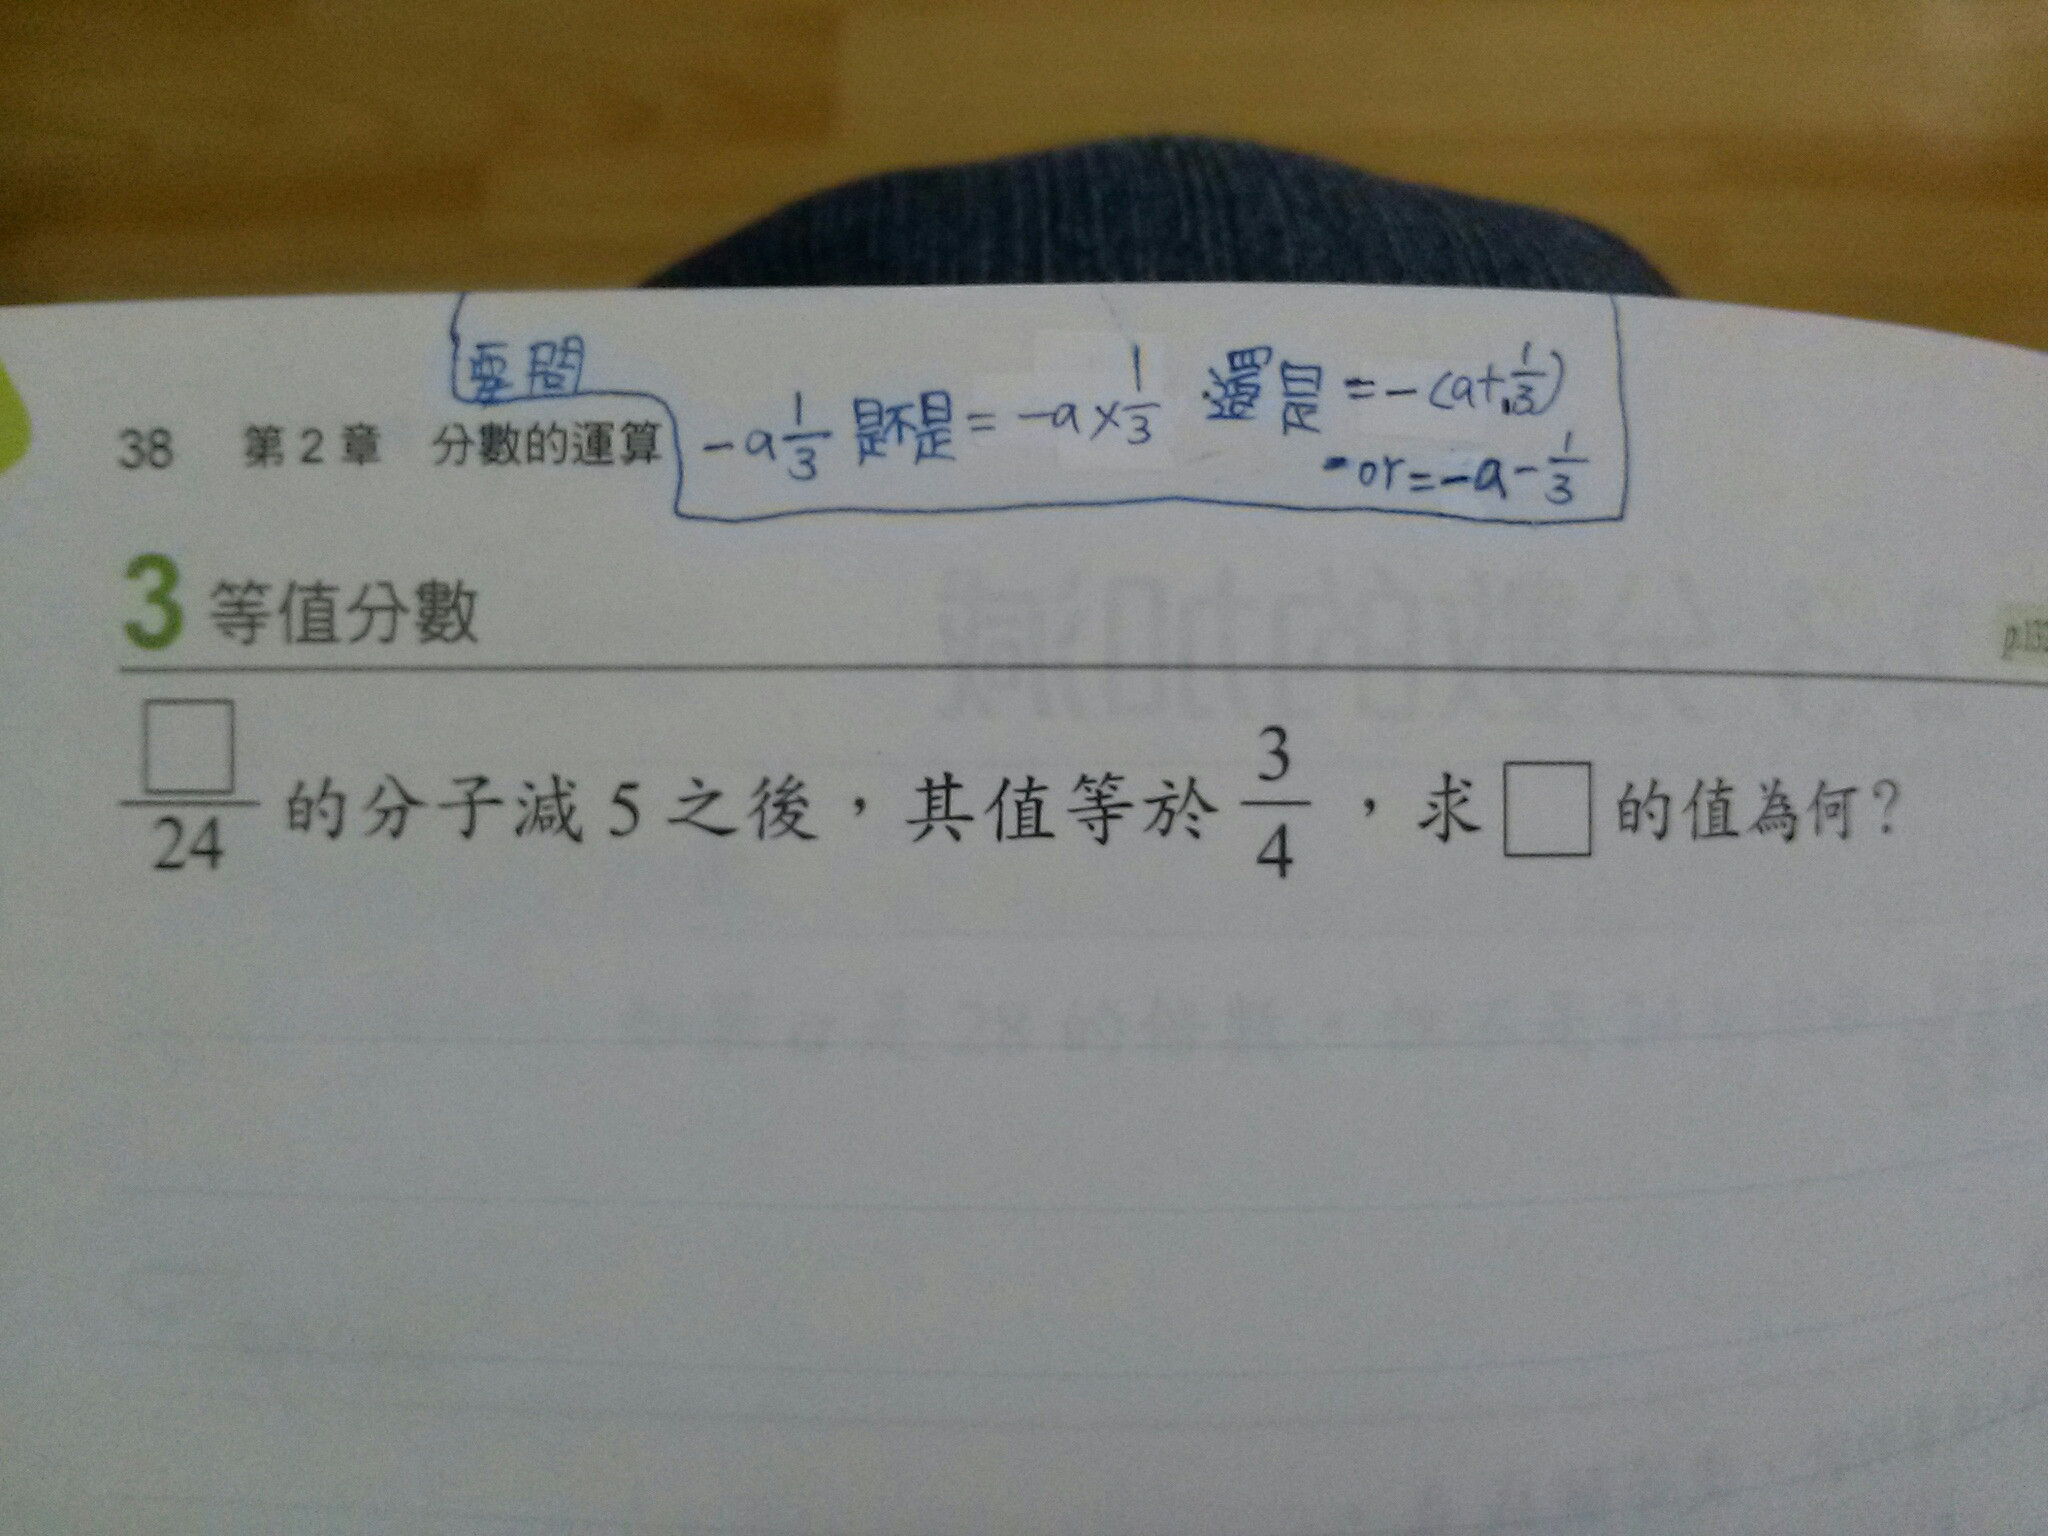 要問
-a 1/3 是不是 = -a × 1/3 還是 = -(a + 1/3)
or = -a - 1/3
38 第 2 章 分數的運算
3 等值分數
p.132
□/24 的分子減 5 之後，其值等於 3/4，求 □ 的值為何？